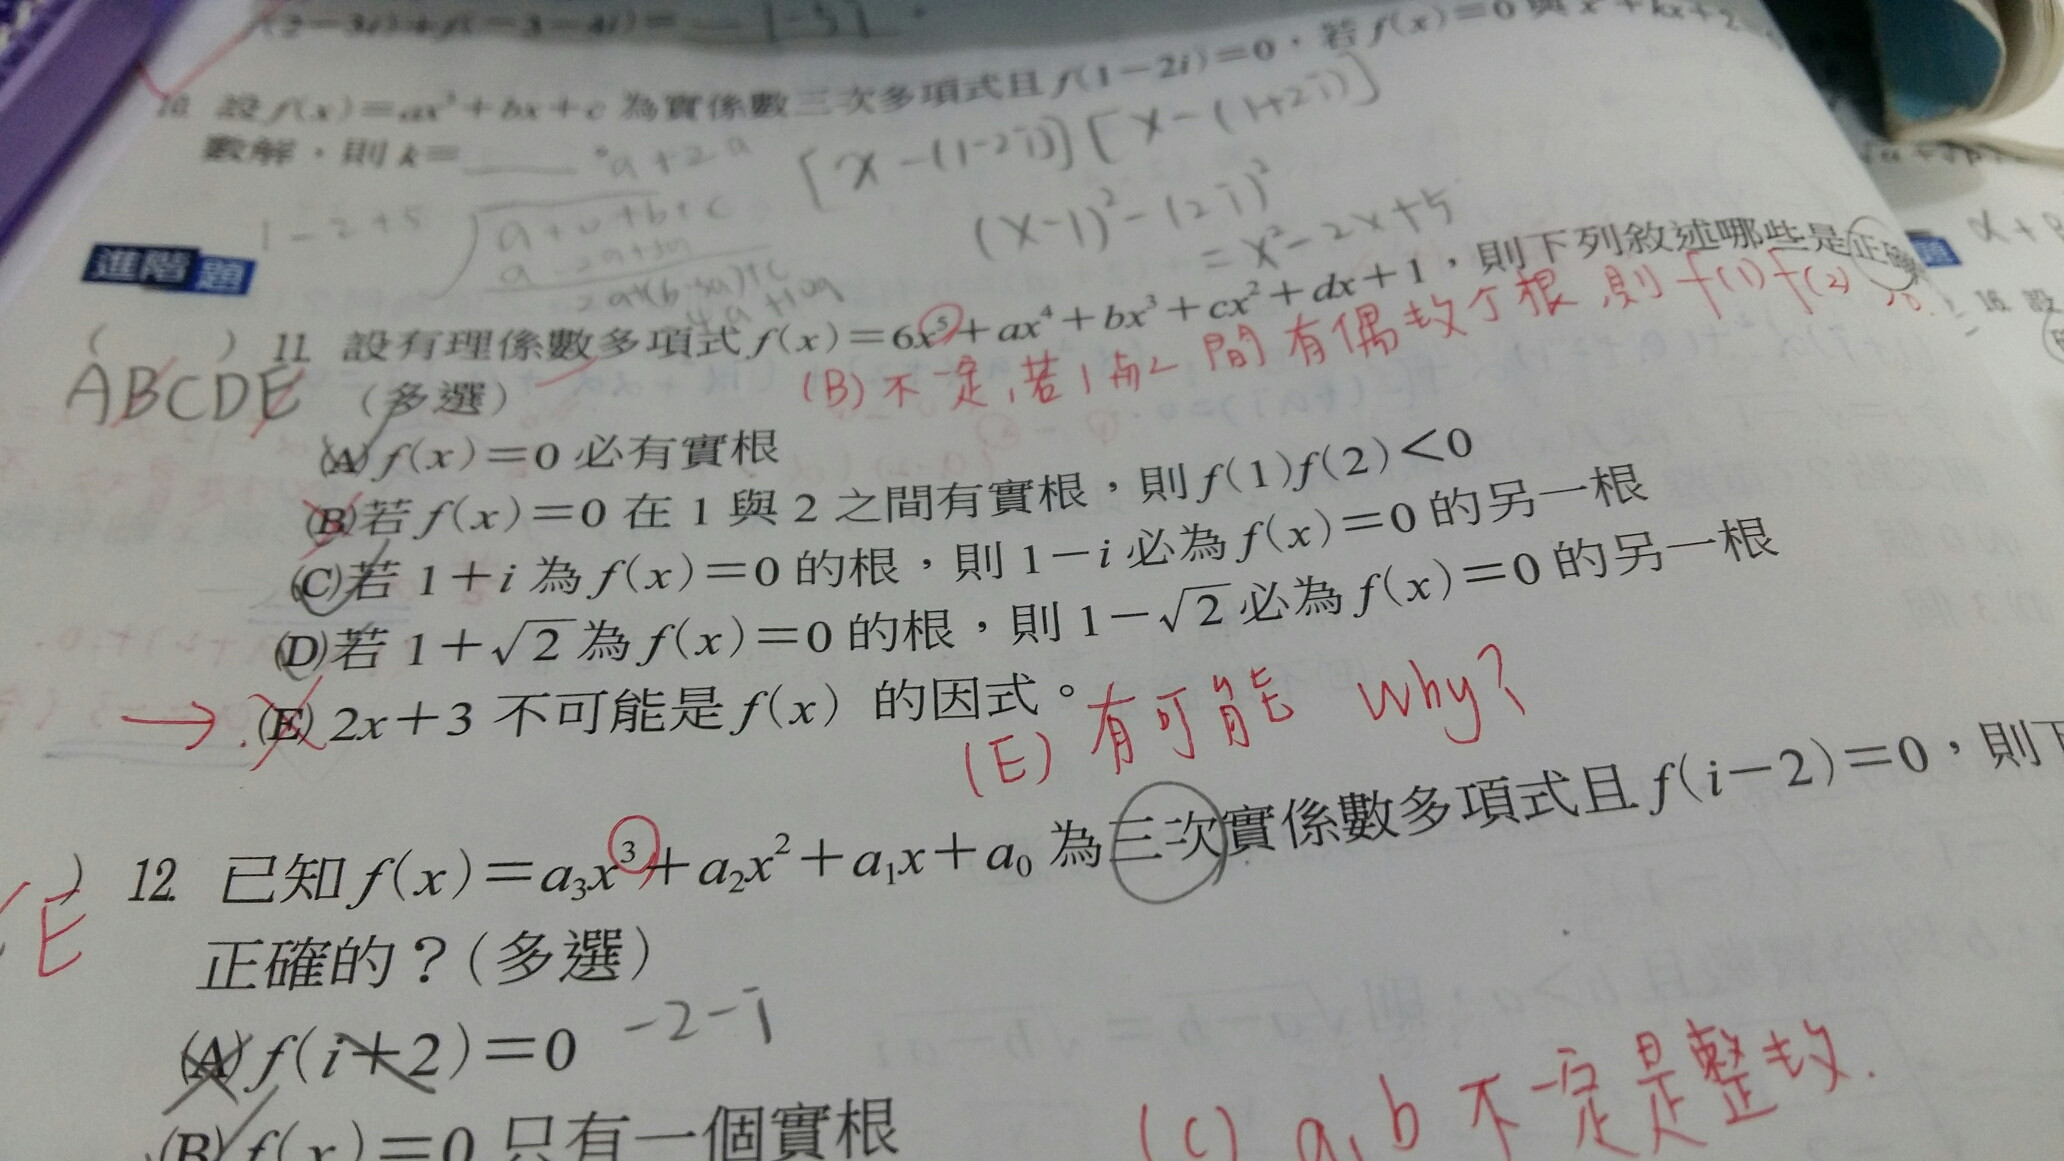 (2－3i)＋f(－3－4i)＝ －1－5i 。
10. 設 f(x)＝ax³＋bx＋c 為實係數三次多項式且 f(1－2i)＝0，若 f(x)＝0 與 x²＋kx＋2
數解，則 k＝____。a＋2a
[x－(1－2i)][x－(1＋2i)]
(x－1)²－(2i)²
＝x²－2x＋5
1－2＋5
a＋0＋b＋c
進階題
( ) 11. 設有理係數多項式 f(x)＝6x⁵＋ax⁴＋bx³＋cx²＋dx＋1，則下列敘述哪些是正確
ABCDE (多選)
(B) 不一定，若1與2間有偶數個根，則 f(1)f(2)>0.
(A) f(x)＝0 必有實根
(B) 若 f(x)＝0 在 1 與 2 之間有實根，則 f(1)f(2)＜0
(C) 若 1＋i 為 f(x)＝0 的根，則 1－i 必為 f(x)＝0 的另一根
(D) 若 1＋√2 為 f(x)＝0 的根，則 1－√2 必為 f(x)＝0 的另一根
→ (E) 2x＋3 不可能是 f(x) 的因式。
(E) 有可能 Why?
) 12. 已知 f(x)＝a₃x³＋a₂x²＋a₁x＋a₀ 為三次實係數多項式且 f(i－2)＝0，則下
E
正確的？(多選)
(A) f(i＋2)＝0 －2－i
(B) f(x)＝0 只有一個實根
(C) a, b 不一定是整數.
題
α＋β
16. 設